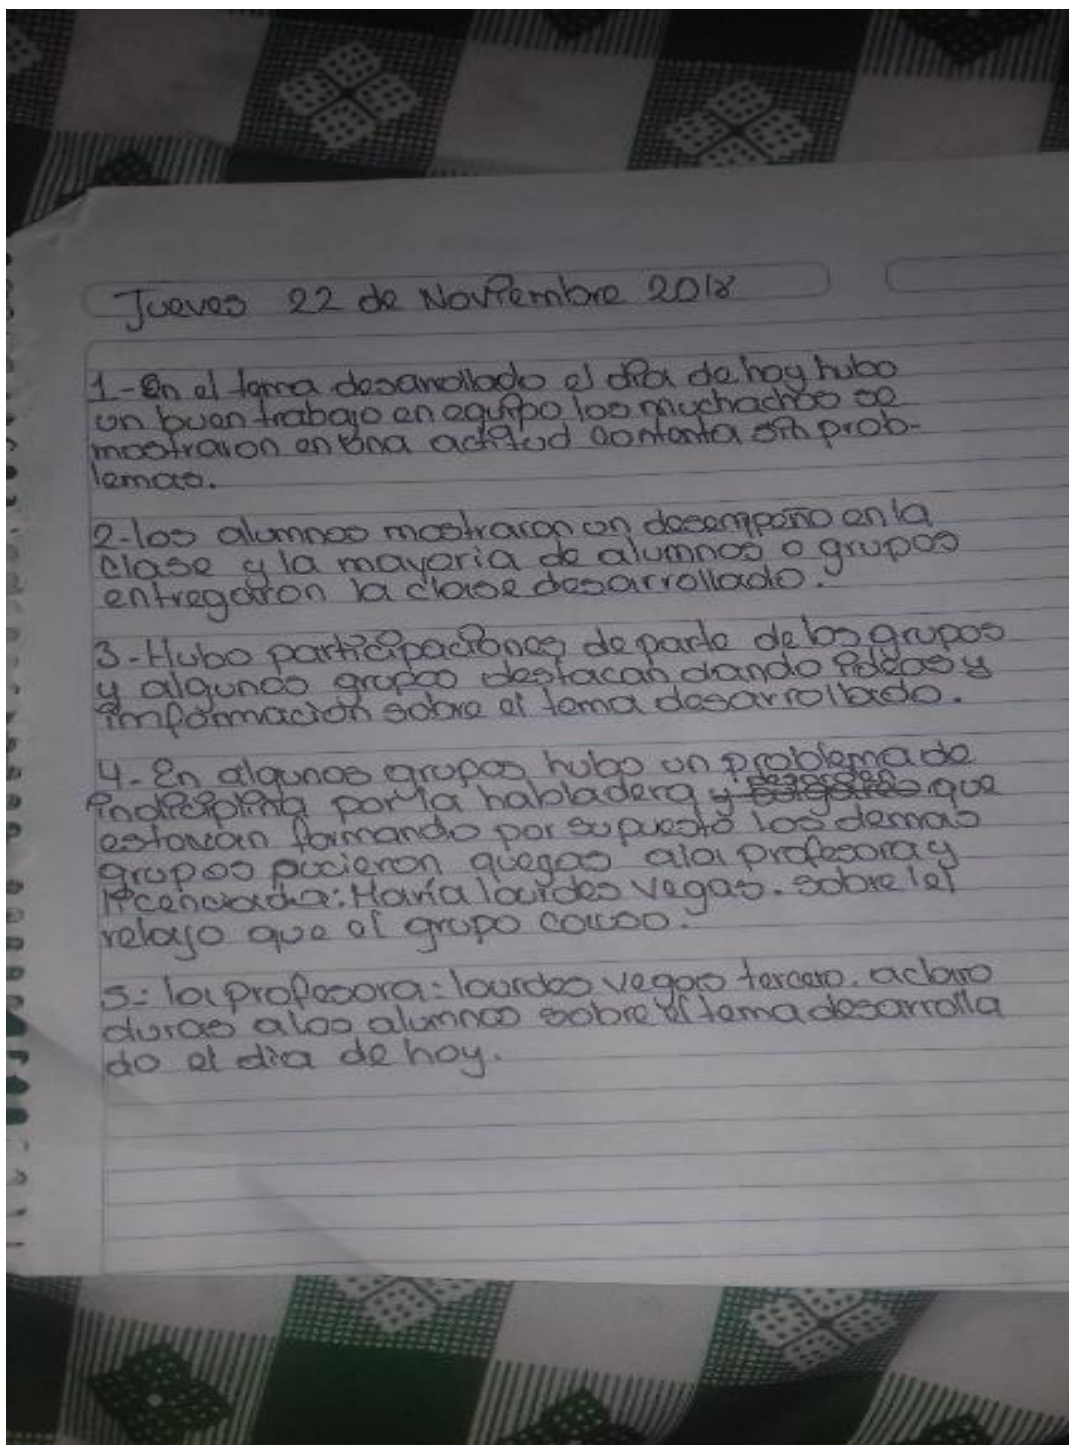 Jueves 22 de Noviembre 2018
1-En el tema desarrollado el dia de hoy hubo
un buen trabajo en equipo los muchachos se
mostraron en una actitud contenta sin prob-
lemas.
2-los alumnos mostraron un desempeño en la
clase y la mayoria de alumnos o grupos
entregaron la clase desarrollado.
3-Hubo participaciones de parte de los grupos
y algunos grupos destacan dando ideas y
información sobre el tema desarrollado.
4-En algunos grupos hubo un problema de
indiciplina por la habladera y desorden que
estavan formando por supuesto los demas
grupos pucieron quegas ala profesora y
licenciada: María lourdes vegas. sobre el
relajo que el grupo causo.
5: la profesora: lourdes vegas tercero. aclaro
duras a los alumnos sobre el tema desarrolla
do el dia de hoy.